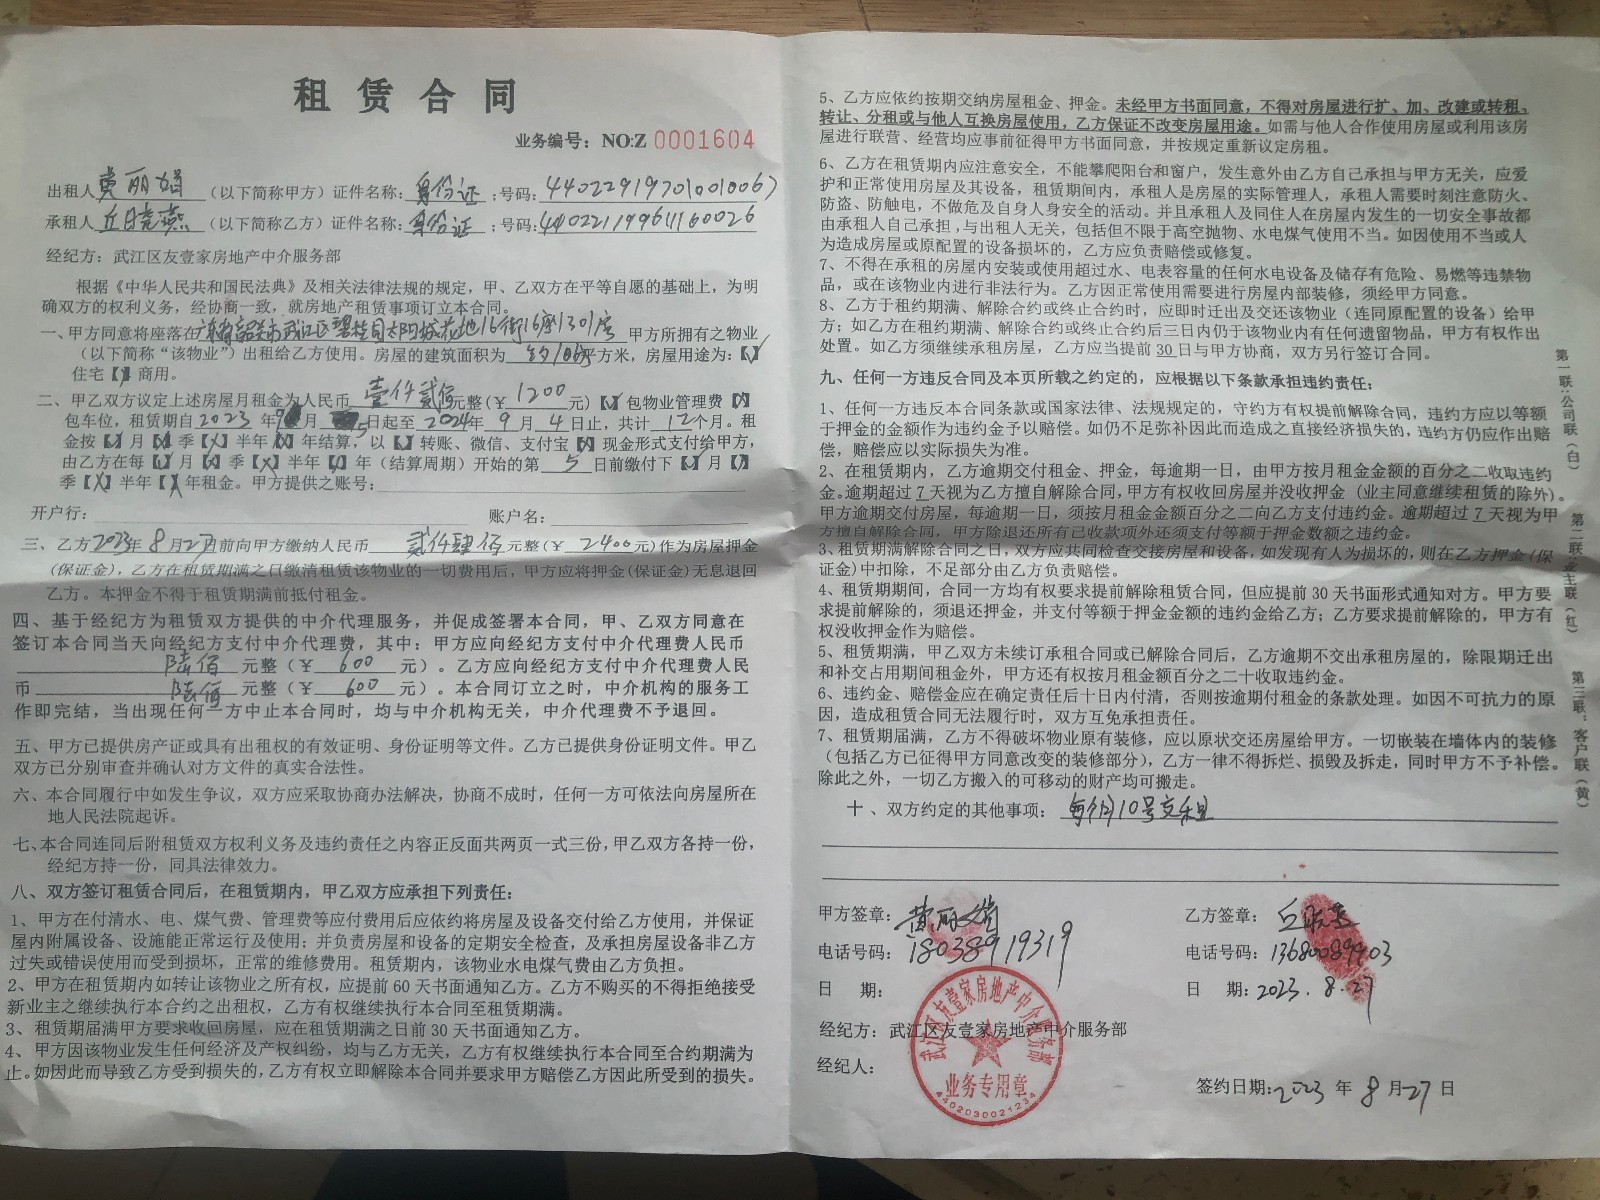 租赁合同
业务编号：NO:Z 0001604
出租人 黄丽娟 （以下简称甲方）证件名称：身份证；号码：440229197010010067
承租人 丘晓燕 （以下简称乙方）证件名称：身份证；号码：440221199611160026
经纪方：武江区友壹家房地产中介服务部
根据《中华人民共和国民法典》及相关法律法规的规定，甲、乙双方在平等自愿的基础上，为明
确双方的权利义务，经协商一致，就房地产租赁事项订立本合同。
一、甲方同意将座落在 韶关市武江区碧桂园太阳城花地16街16座1301房 甲方所拥有之物业
（以下简称“该物业”）出租给乙方使用。房屋的建筑面积为 约106平方米，房屋用途为：【√】
住宅【】商用。
二、甲乙双方议定上述房屋月租金为人民币 壹仟贰佰元整（￥ 1200 元）【√】包物业管理费【】
包车位，租赁期自2023年9月5日起至2024年9月4日止，共计12个月。租
金按【√】月【X】季【X】半年【X】年结算，以【√】转账、微信、支付宝【X】现金形式支付给甲方，
由乙方在每【√】月【X】季【X】半年【】年（结算周期）开始的第 5 日前缴付下【√】月【】
季【X】半年【X】年租金。甲方提供之账号：
开户行： 账户名：
三、乙方2023年8月27日前向甲方缴纳人民币 贰仟肆佰元整（￥ 2400元）作为房屋押金
（保证金），乙方在租赁期满之日缴清租赁该物业的一切费用后，甲方应将押金（保证金）无息退回
乙方。本押金不得于租赁期满前抵付租金。
四、基于经纪方为租赁双方提供的中介代理服务，并促成签署本合同，甲、乙双方同意在
签订本合同当天向经纪方支付中介代理费，其中：甲方应向经纪方支付中介代理费人民币
陆佰 元整（￥ 600 元）。乙方应向经纪方支付中介代理费人民
币 陆佰 元整（￥ 600 元）。本合同订立之时，中介机构的服务工
作即完结，当出现任何一方中止本合同时，均与中介机构无关，中介代理费不予退回。
五、甲方已提供房产证或具有出租权的有效证明、身份证明等文件。乙方已提供身份证明文件。甲乙
双方已分别审查并确认对方文件的真实合法性。
六、本合同履行中如发生争议，双方应采取协商办法解决，协商不成时，任何一方可依法向房屋所在
地人民法院起诉。
七、本合同连同后附租赁双方权利义务及违约责任之内容正反面共两页一式三份，甲乙双方各持一份，
经纪方持一份，同具法律效力。
八、双方签订租赁合同后，在租赁期内，甲乙双方应承担下列责任：
1、甲方在付清水、电、煤气费、管理费等应付费用后应依约将房屋及设备交付给乙方使用，并保证
屋内附属设备、设施能正常运行及使用；并负责房屋和设备的定期安全检查，及承担房屋设备非乙方
过失或错误使用而受到损坏，正常的维修费用。租赁期内，该物业水电煤气费由乙方负担。
2、甲方在租赁期内如转让该物业之所有权，应提前60天书面通知乙方。乙方不购买的不得拒绝接受
新业主之继续执行本合约之出租权，乙方有权继续执行本合同至租赁期满。
3、租赁期届满甲方要求收回房屋，应在租赁期满之日前30天书面通知乙方。
4、甲方因该物业发生任何经济及产权纠纷，均与乙方无关，乙方有权继续执行本合同至合约期满为
止。如因此而导致乙方受到损失的，乙方有权立即解除本合同并要求甲方赔偿乙方因此所受到的损失。
5、乙方应依约按期交纳房屋租金、押金。未经甲方书面同意，不得对房屋进行扩、加、改建或转租、
转让、分租或与他人互换房屋使用，乙方保证不改变房屋用途。如需与他人合作使用房屋或利用该房
屋进行联营、经营均应事前征得甲方书面同意，并按规定重新议定房租。
6、乙方在租赁期内应注意安全，不能攀爬阳台和窗户，发生意外由乙方自己承担与甲方无关，应爱
护和正常使用房屋及其设备，租赁期间内，承租人是房屋的实际管理人，承租人需要时刻注意防火、
防盗、防触电，不做危及自身人身安全的活动。并且承租人及同住人在房屋内发生的一切安全事故都
由承租人自己承担，与出租人无关，包括但不限于高空抛物、水电煤气使用不当。如因使用不当或人
为造成房屋或原配置的设备损坏的，乙方应负责赔偿或修复。
7、不得在承租的房屋内安装或使用超过水、电表容量的任何水电设备及储存有危险、易燃等违禁物
品，或在该物业内进行非法行为。乙方因正常使用需要进行房屋内部装修，须经甲方同意。
8、乙方于租约期满、解除合约或终止合约时，应即时迁出及交还该物业（连同原配置的设备）给甲
方；如乙方在租约期满、解除合约或终止合约后三日内仍于该物业内有任何遗留物品，甲方有权作出
处置。如乙方须继续承租房屋，乙方应当提前30日与甲方协商，双方另行签订合同。
九、任何一方违反合同及本页所载之约定的，应根据以下条款承担违约责任：
1、任何一方违反本合同条款或国家法律、法规规定的，守约方有权提前解除合同，违约方应以等额
于押金的金额作为违约金予以赔偿。如仍不足弥补因此而造成之直接经济损失的，违约方仍应作出赔
偿，赔偿应以实际损失为准。
2、在租赁期内，乙方逾期交付租金、押金，每逾期一日，由甲方按月租金金额的百分之二收取违约
金。逾期超过7天视为乙方擅自解除合同，甲方有权收回房屋并没收押金（业主同意继续租赁的除外）。
甲方逾期交付房屋，每逾期一日，须按月租金金额百分之二向乙方支付违约金。逾期超过7天视为甲
方擅自解除合同，甲方除退还所有已收款项外还须支付等额于押金数额之违约金。
3、租赁期满解除合同之日，双方应共同检查交接房屋和设备，如发现有人为损坏的，则在乙方押金（保
证金）中扣除，不足部分由乙方负责赔偿。
4、租赁期期间，合同一方均有权要求提前解除租赁合同，但应提前30天书面形式通知对方。甲方要
求提前解除的，须退还押金，并支付等额于押金金额的违约金给乙方；乙方要求提前解除的，甲方有
权没收押金作为赔偿。
5、租赁期满，甲乙双方未续订承租合同或已解除合同后，乙方逾期不交出承租房屋的，除限期迁出
和补交占用期间租金外，甲方还有权按月租金额百分之二十收取违约金。
6、违约金、赔偿金应在确定责任后十日内付清，否则按逾期付租金的条款处理。如因不可抗力的原
因，造成租赁合同无法履行时，双方互免承担责任。
7、租赁期届满，乙方不得破坏物业原有装修，应以原状交还房屋给甲方。一切嵌装在墙体内的装修
（包括乙方已征得甲方同意改变的装修部分），乙方一律不得拆烂、损毁及拆走，同时甲方不予补偿。
除此之外，一切乙方搬入的可移动的财产均可搬走。
十、双方约定的其他事项：每个月10号交租
甲方签章：黄丽娟
电话号码：18038919319
日 期：
乙方签章：丘晓燕
电话号码：13680089903
日 期：2023.8.27
经纪方：武江区友壹家房地产中介服务部
经纪人：
签约日期：2023年8月27日
武江区友壹家房地产中介服务部
业务专用章
4402030021234
第一联：公司联（白）
第二联：业主联（红）
第三联：客户联（黄）